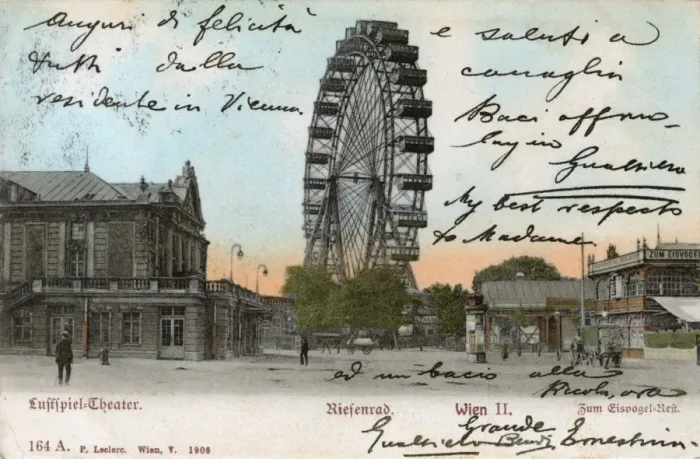 Auguri di felicità
tutti dalla
residente in Vienna
e saluti a
canaglia
Baci
Gualtiero
My best respects
to Madame
ZUM EISVOGEL
ed un bacio alla
Luſtſpiel-Theater.
Rieſenrad.
Wien II.
Zum Eisvogel-Reſt.
Grande
Gualtiero Ernestina
164 A. P. Leclerc. Wien, V. 1906